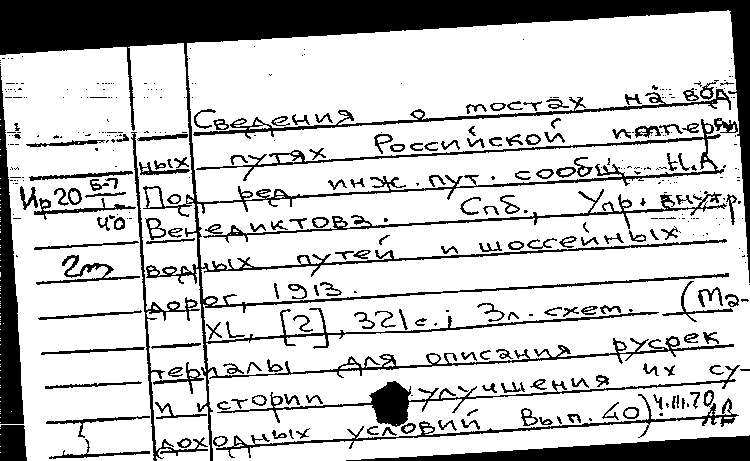 Сведения о мостах на вод-
ных путях Российской империи
Ир20 Б-7/1 40
Под ред. инж. пут. сообщ. Н.А.
Венедиктова. Спб., Упр. внутр.
2т
водных путей и шоссейных
дорог, 1913.
XL, [2], 321с.; 3л. схем. (Ма-
териалы для описания русрек
и истории улучшения их су-
доходных условий. Вып. 40)
4.III.70